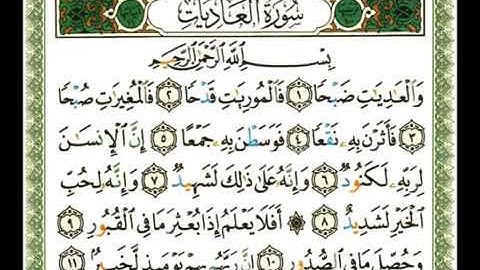 سُورَةُ العَادِيَاتِ
بِسْمِ اللَّهِ الرَّحْمَٰنِ الرَّحِيمِ
وَالْعَادِيَاتِ ضَبْحًا ١ فَالْمُورِيَاتِ قَدْحًا ٢ فَالْمُغِيرَاتِ صُبْحًا
٣ فَأَثَرْنَ بِهِ نَقْعًا ٤ فَوَسَطْنَ بِهِ جَمْعًا ٥ إِنَّ الْإِنسَانَ
لِرَبِّهِ لَكَنُودٌ ٦ وَإِنَّهُ عَلَىٰ ذَٰلِكَ لَشَهِيدٌ ٧ وَإِنَّهُ لِحُبِّ
الْخَيْرِ لَشَدِيدٌ ٨ ۞ أَفَلَا يَعْلَمُ إِذَا بُعْثِرَ مَا فِي الْقُبُورِ ٩
وَحُصِّلَ مَا فِي الصُّدُورِ ١٠ إِنَّ رَبَّهُم بِهِمْ يَوْمَئِذٍ لَّخَبِيرٌ ١١